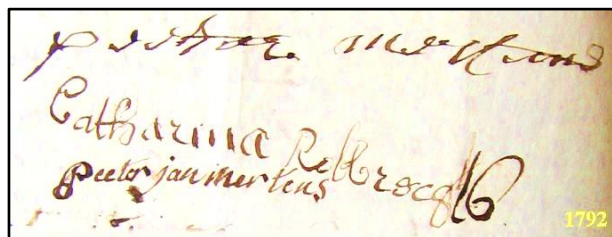 peeter mertens
Catharina Rebbrocq
peeter jan mertens
1792